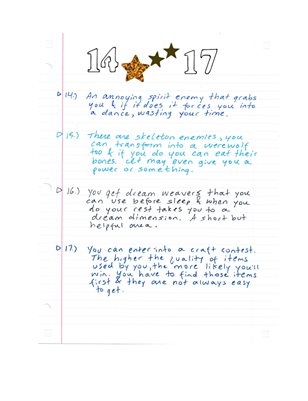 14 17
14.) An annoying spirit enemy that grabs
you & if it does it forces you into
a dance, wasting your time.
15.) There are skeleton enemies, you
can transform into a werewolf
too & if you do you can eat their
bones. It may even give you a
power or something.
16.) You get dream weavers that you
can use before sleep & when you
do your rest takes you to a
dream dimension. A short but
helpful area.
17) You can enter into a craft contest.
The higher the quality of items
used by you, the more likely you'll
win. You have to find those items
first & they are not always easy
to get.